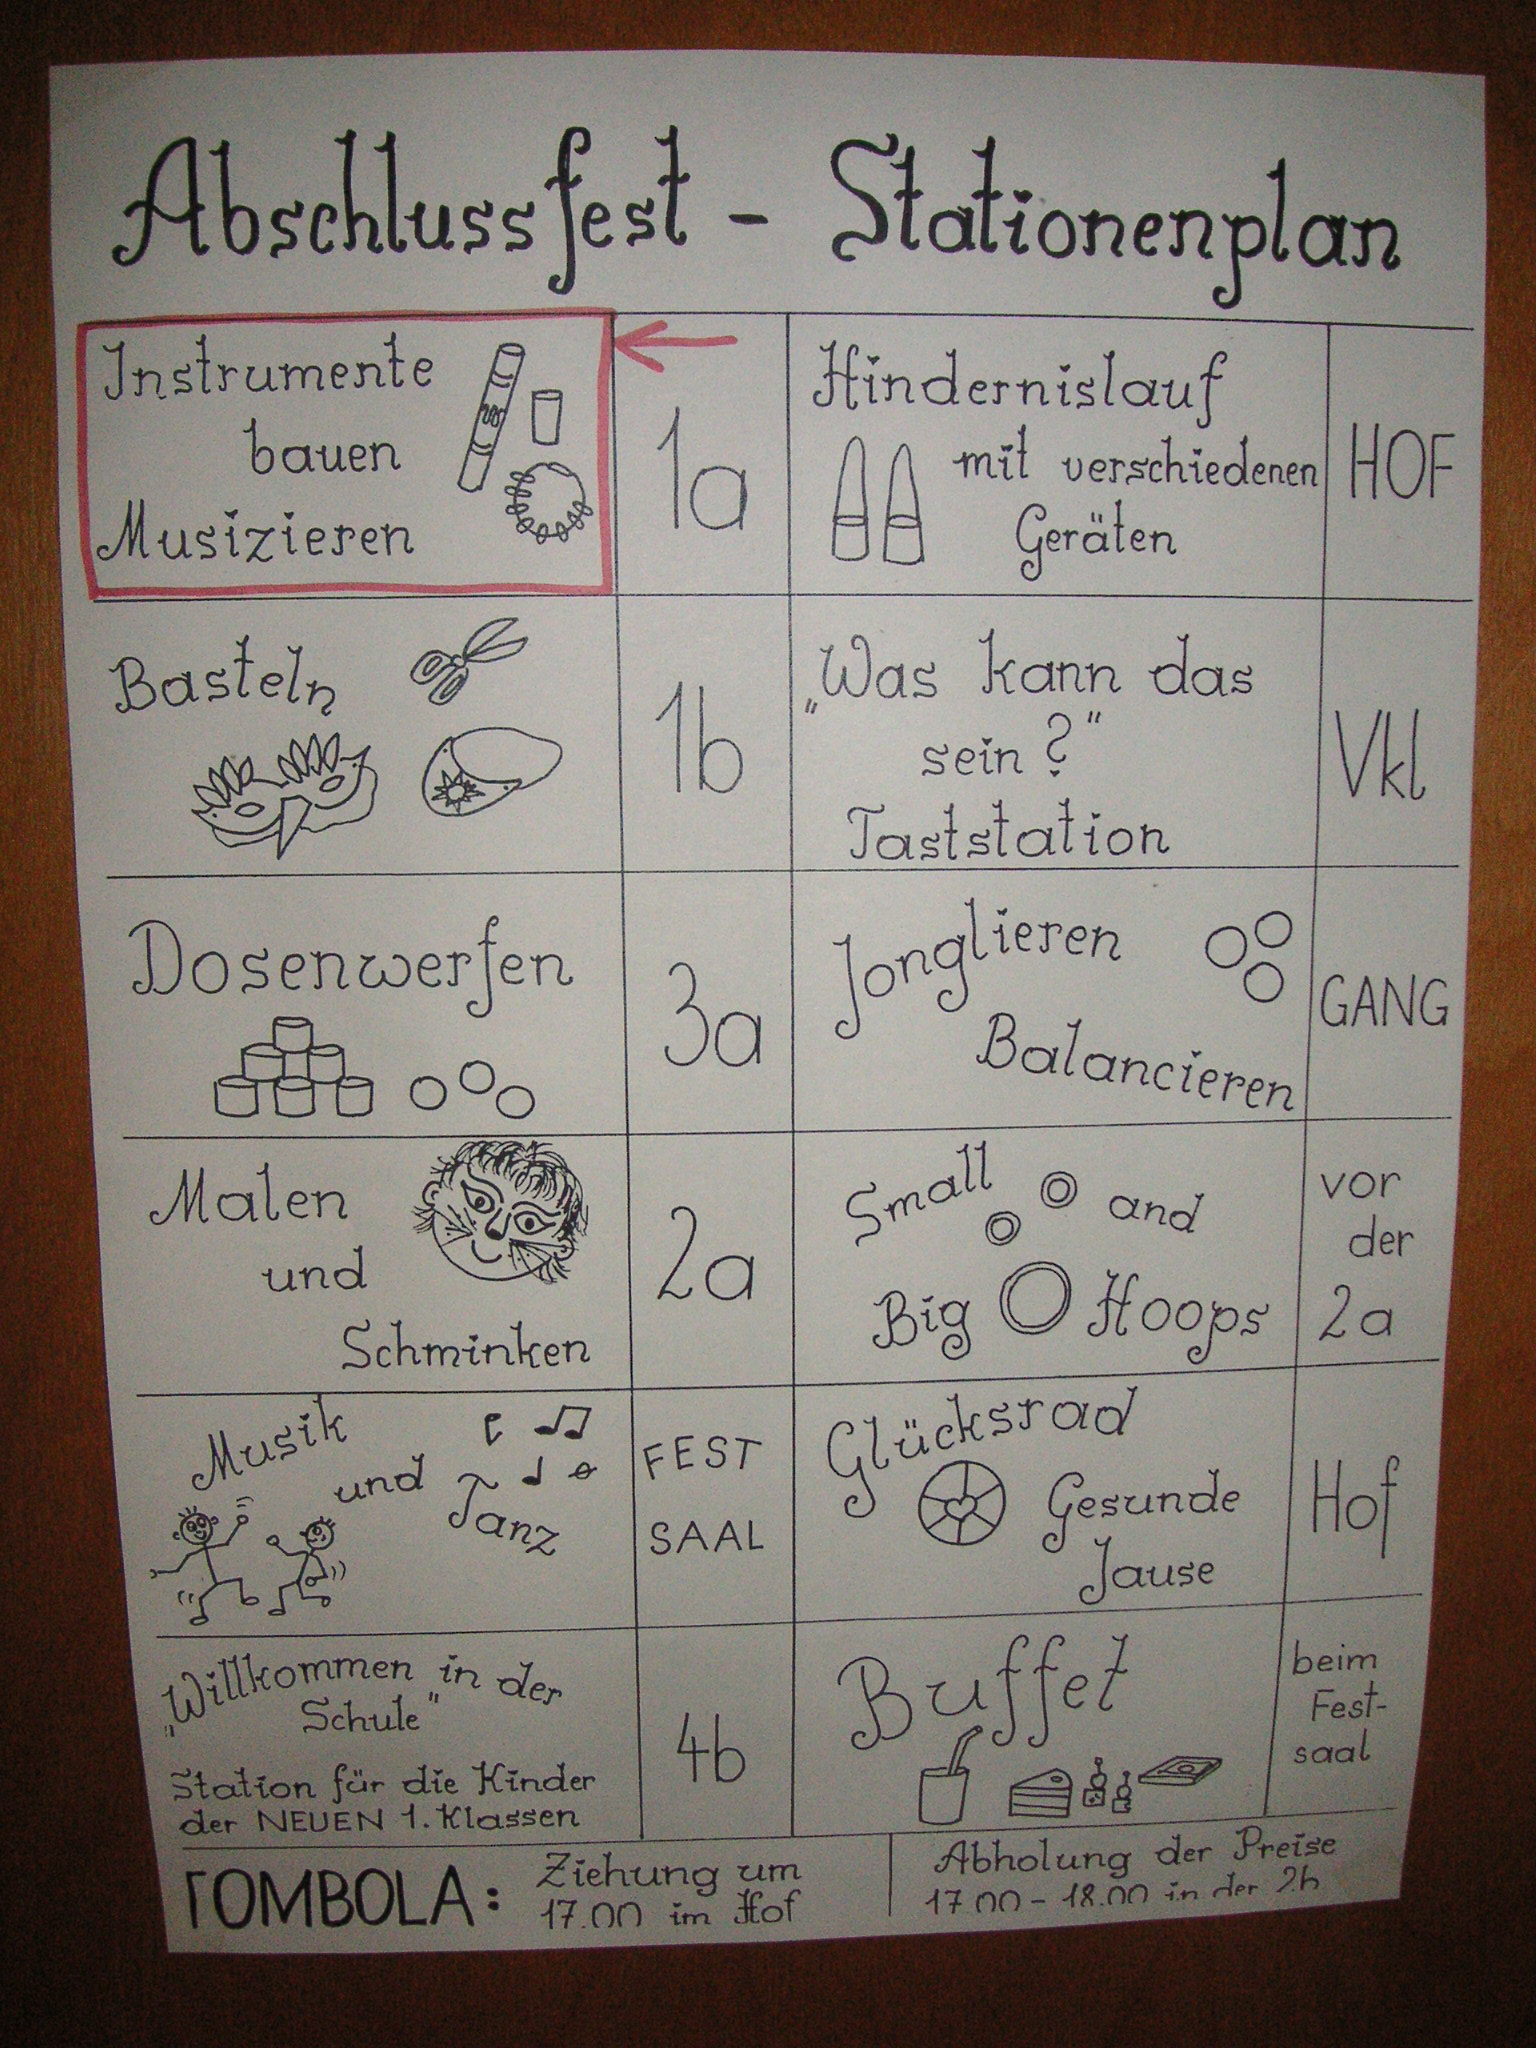 Abschlussfest - Stationenplan
Instrumente
bauen
Musizieren
1a
Hindernislauf
mit verschiedenen
Geräten
HOF
Basteln
1b
„Was kann das
sein?"
Taststation
Vkl
Dosenwerfen
3a
Jonglieren
Balancieren
GANG
Malen
und
Schminken
2a
Small and
Big Hoops
vor
der
2a
Musik
und
Tanz
FEST
SAAL
Glücksrad
Gesunde
Jause
Hof
„Willkommen in der
Schule"
Station für die Kinder
der NEUEN 1. Klassen
4b
Buffet
beim
Fest-
saal
TOMBOLA:
Ziehung um
17.00 im Hof
Abholung der Preise
17.00 - 18.00 in der 2b